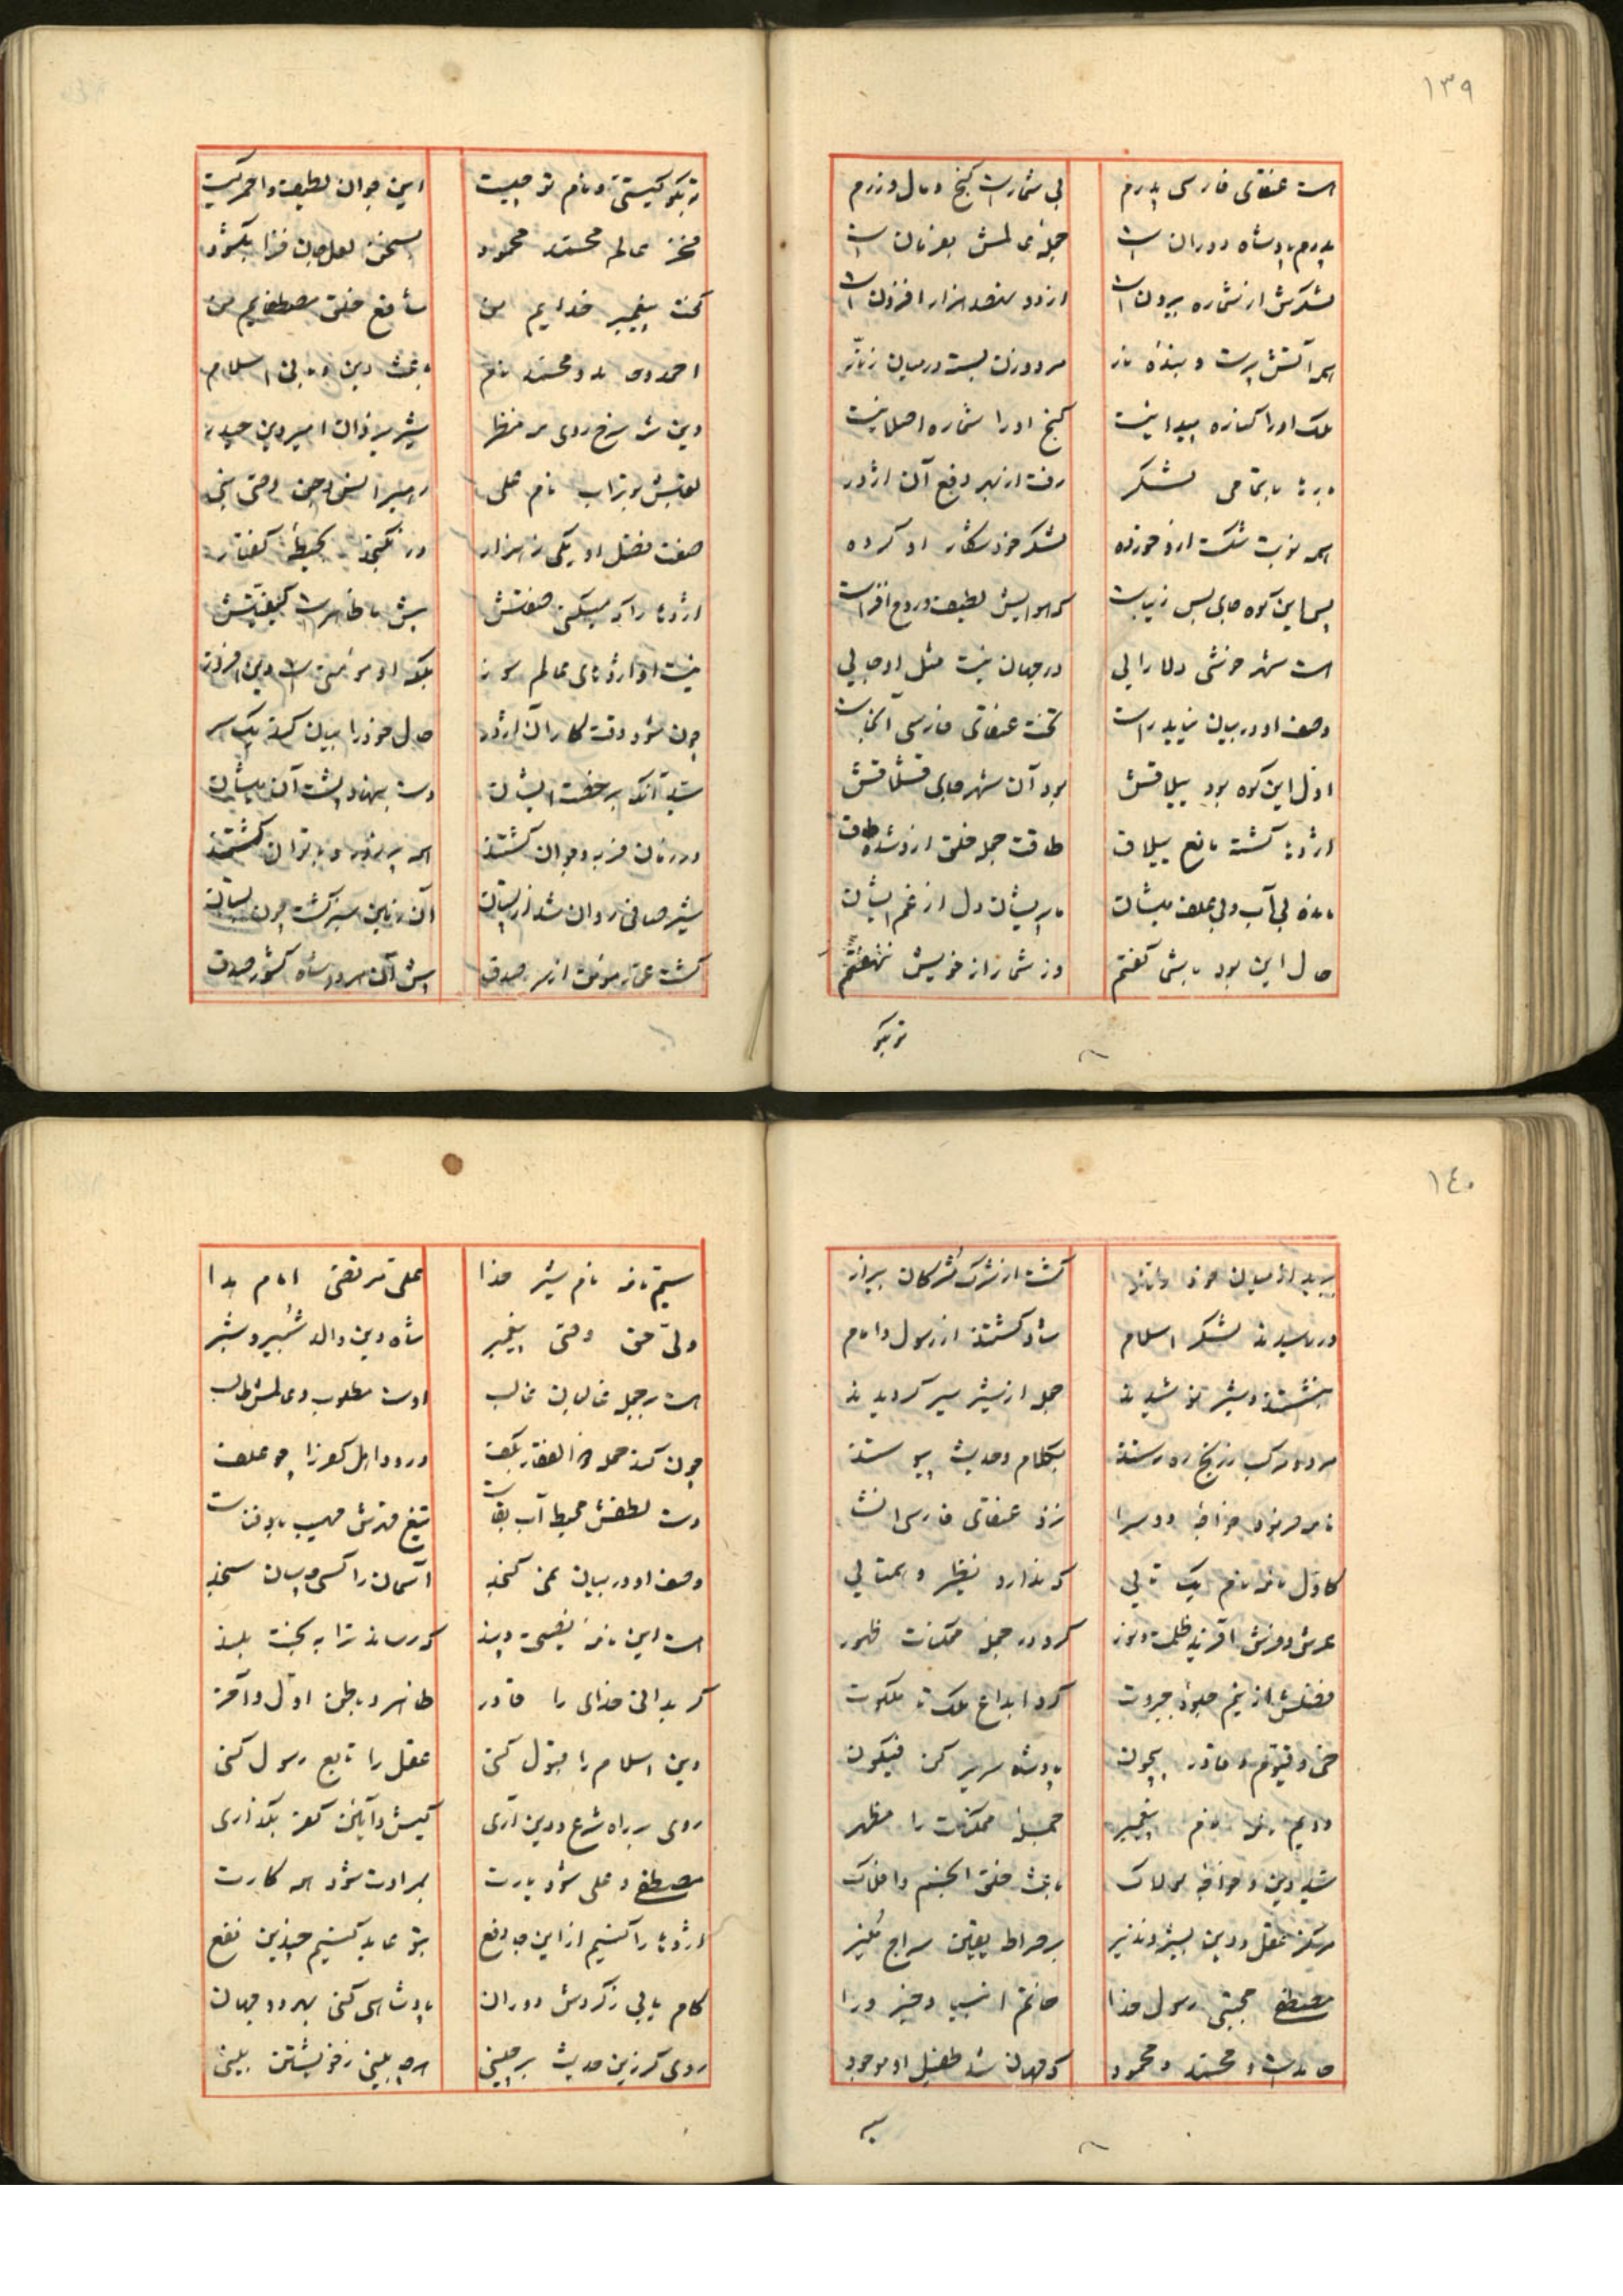 ١٣٩
است عنقای فارسی پدرم بی شمارست گنج و مال و زرم
پدرم پادشاه دوران است جملهٔ عالمش بفرمان است
لشکرش از شماره بیرون است از دو سصد هزار افزون است
همه آتش پرست و بندهٔ نار مرد و زن بسته در میان زنار
ملک او را کناره پیدا نیست گنج او را شماره اصلا نیست
با تمامی لشکر رفت از بهر دفع آن اژدر
همه نوبت شکست ازو خورده لشکر خود شکار او کرده
این کوه جای بس زیباست که هوایش لطیف و روح افزاست
است شهر خوشی دلارایی در جهان نیست مثل او جایی
وصف او در بیان نیاید راست تخت عنقای فارسی آنجاست
اول این کوه بود ییلاقش بود آن شهر جای قشلاقش
اژدها گشته مانع ییلاق طاقت جمله خلق ازو شده طاق
مانده بی آب و بی علف میشان ما پریشان دل از غم ایشان
حال این بود با شما گفتم وز شما راز خویش ننهفتم
تو بگو
تو بگو کیستی و نام تو چیست این جوان لطیف و احمر کیست
فخر عالم محمد محمود بسخن لعل جان فزا بگشود
گفت پیغمبر خدایم من شافع خلق مصطفایم من
احمد و حامد و محمد نام باعث دین و بانی اسلام
وین شه سرخ روی مه منظر شیر یزدان امیر دین حیدر
لقبش بوتراب نام علی رهبر انس و جن وصی نبی
صفت فضل او یکی ز هزار در نگنجد بحیطهٔ گفتار
اژدها را که میکنی صفتش پیش ما ظاهرست کیفیتش
نیست او اژدهای عالم سوز بلکه او مؤمنی است دین افروز
چون شود وقت کار آن اژدر حال خود را بیان کند یک سر
دست بنهاد پشت آن میشان
در زمان فربه و جوان گشتند همه پر زور و با توان گشتند
شیر صافی روان شد از پستان آن زمین سبز گشت چون بستان
گشت مؤمن از سر صدق پیش آن سرور شاه کشور صدق
١٤٠
ببرید از میان خود زنار گشت از شرک مشرکان بیزار
در رسیدند لشکر اسلام شاد گشتند از رسول و امام
بنشستند و شیر نوشیدند جمله از شیر سیر گردیدند
مرد و مرکب ز رنج ره رستند بکلام و حدیث پیوستند
نامه فرمود خواجهٔ دو سرا نزد عنقای فارسی انشا
کاول نامه نام یکتایی که ندارد نظیر و همتایی
عرش و فرش آفرید ظلمت و نور کرد در جمله ممکنات ظهور
فضلش از یم جبروت کرد ابداع ملک تا ملکوت
حی و قیوم و قادر بیچون پادشاه سریر کن فیکون
دویم نامه نام پیغمبر جمله ممکنات را مظهر
شاه دین و خواجه لولاک باعث خلق انجم و افلاک
مرکز عقل و دین بشیر و نذیر بر صراط یقین سراج منیر
مصطفی مجتبی رسول خدا خاتم انبیا و خیر ورا
حامدست و محمد و محمود که جهان شد طفیل او موجود
سیم
سیم نامه نام شیر خدا علی مرتضی امام هدا
ولی حق وصی پیغمبر شاه دین والد شبیر و شبر
است بر جمله غالبان غالب اوست مطلوب و عالمش طالب
چون کند حمله ذوالفقار بکف درود اهل کفر را چو علف
دست لطفش محیط آب بقاست تیغ قهرش مهیب باد فناست
وصف او در بیان نمی گنجد آسمان را کسی چسان سنجد
است این نامه نصیحت و پند که رساند ترا به بخت بلند
گر بدانی خدای را قادر ظاهر و باطن اول و آخر
دین اسلام را قبول کنی عقل را تابع رسول کنی
روی بر راه شرع و دین آری کیش و آئین کفر بگذاری
مصطفی و علی شود یارت بمرادت شود همه کارت
اژدها را کنیم از این جا دفع بتو عاید کنیم چندین نفع
کام یابی ز گردش دوران پادشاهی کنی بهر دو جهان
روی گر زین حدیث برچینی هرچه بینی ز خویشتن بینی